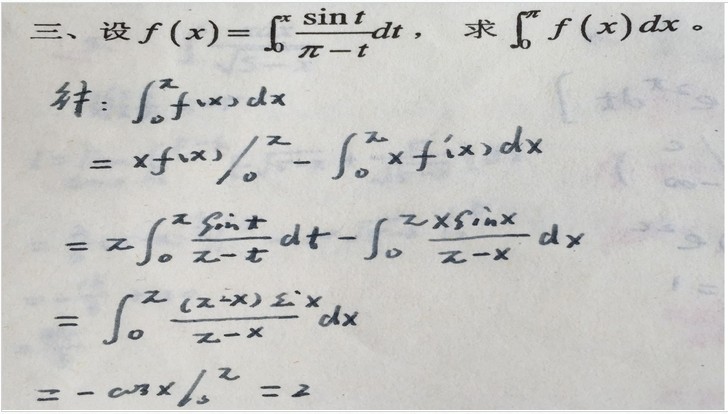 三、设 f(x)=∫₀ˣ sin t/(π−t) dt， 求 ∫₀^π f(x)dx。
解: ∫₀^π f(x)dx
= xf(x)/₀^π − ∫₀^π x f'(x)dx
= π∫₀^π sin t/(π−t) dt − ∫₀^π x sin x/(π−x) dx
= ∫₀^π (π−x) sin x/(π−x) dx
= −cos x/₀^π = 2